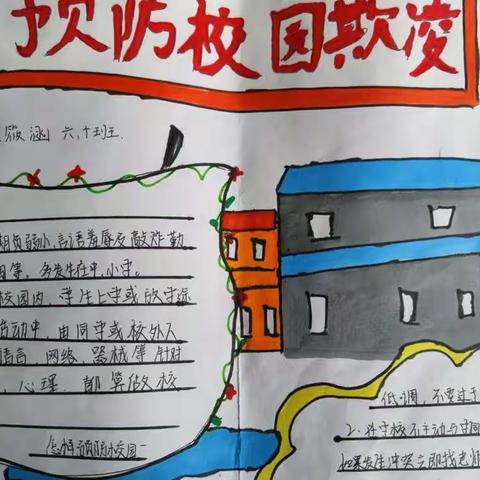 预防校园欺凌
涵 六、十班
期负弱小、言语羞辱及敲炸勒
等，多发生在中、小学。
校园内、学生上学或放学途
活动中，由同学或校外人
语言、网络、器械等针对
、心理、都算做校
怎样预防校园
低调，不要过于
2、在学校不主动与同
如果发生冲突立即找老师